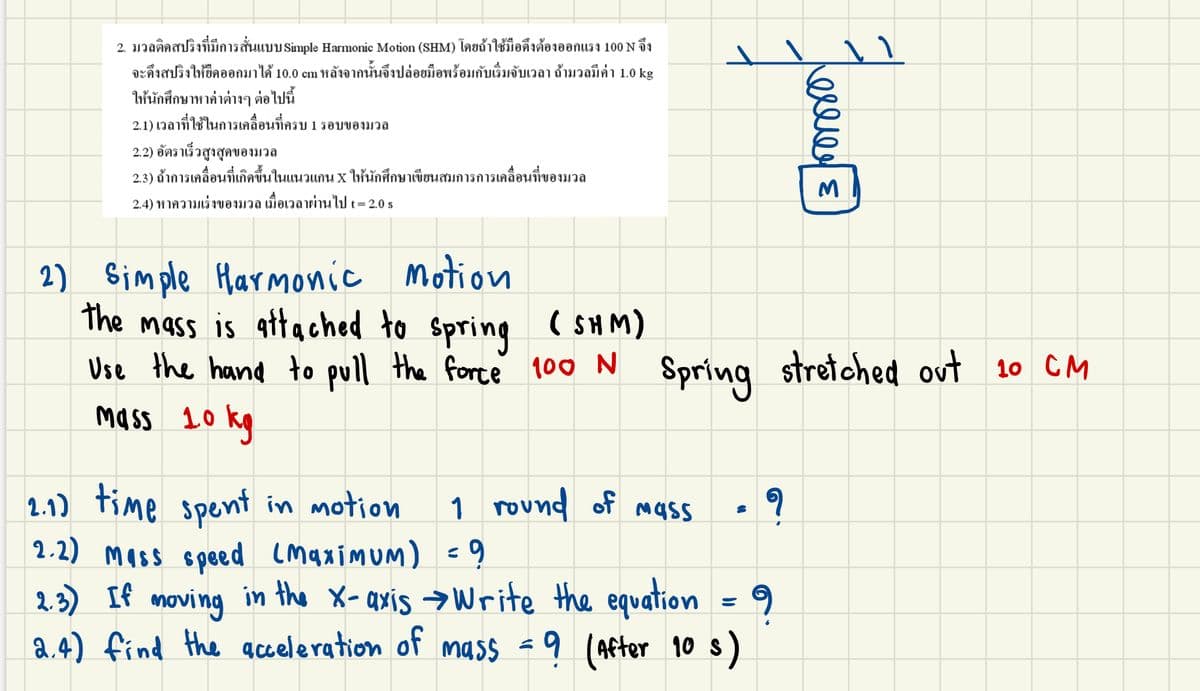 2. มวลติดสปริงที่มีการสั่นแบบ Simple Harmonic Motion (SHM) โดยถ้าใช้มือดึงต้องออกแรง 100 N จึง
จะดึงสปริงให้ยืดออกมาได้ 10.0 cm หลังจากนั้นจึงปล่อยมือพร้อมกับเริ่มจับเวลา ถ้ามวลมีค่า 1.0 kg
ให้นักศึกษาหาค่าต่างๆ ต่อไปนี้
2.1) เวลาที่ใช้ในการเคลื่อนที่ครบ 1 รอบของมวล
2.2) อัตราเร็วสูงสุดของมวล
2.3) ถ้าการเคลื่อนที่เกิดขึ้นในแนวแกน X ให้นักศึกษาเขียนสมการการเคลื่อนที่ของมวล
2.4) หาความเร่งของมวล เมื่อเวลาผ่านไป t = 2.0 s
M
2) Simple Harmonic Motion
the mass is attached to spring (SHM)
Use the hand to pull the force 100 N Spring stretched out 10 CM
Mass 1.0 kg
2.1) time spent in motion 1 round of mass = ?
2.2) Mass speed (Maximum) = ?
2.3) If moving in the X-axis → Write the equation = ?
2.4) find the acceleration of mass = ? (After 10 s)